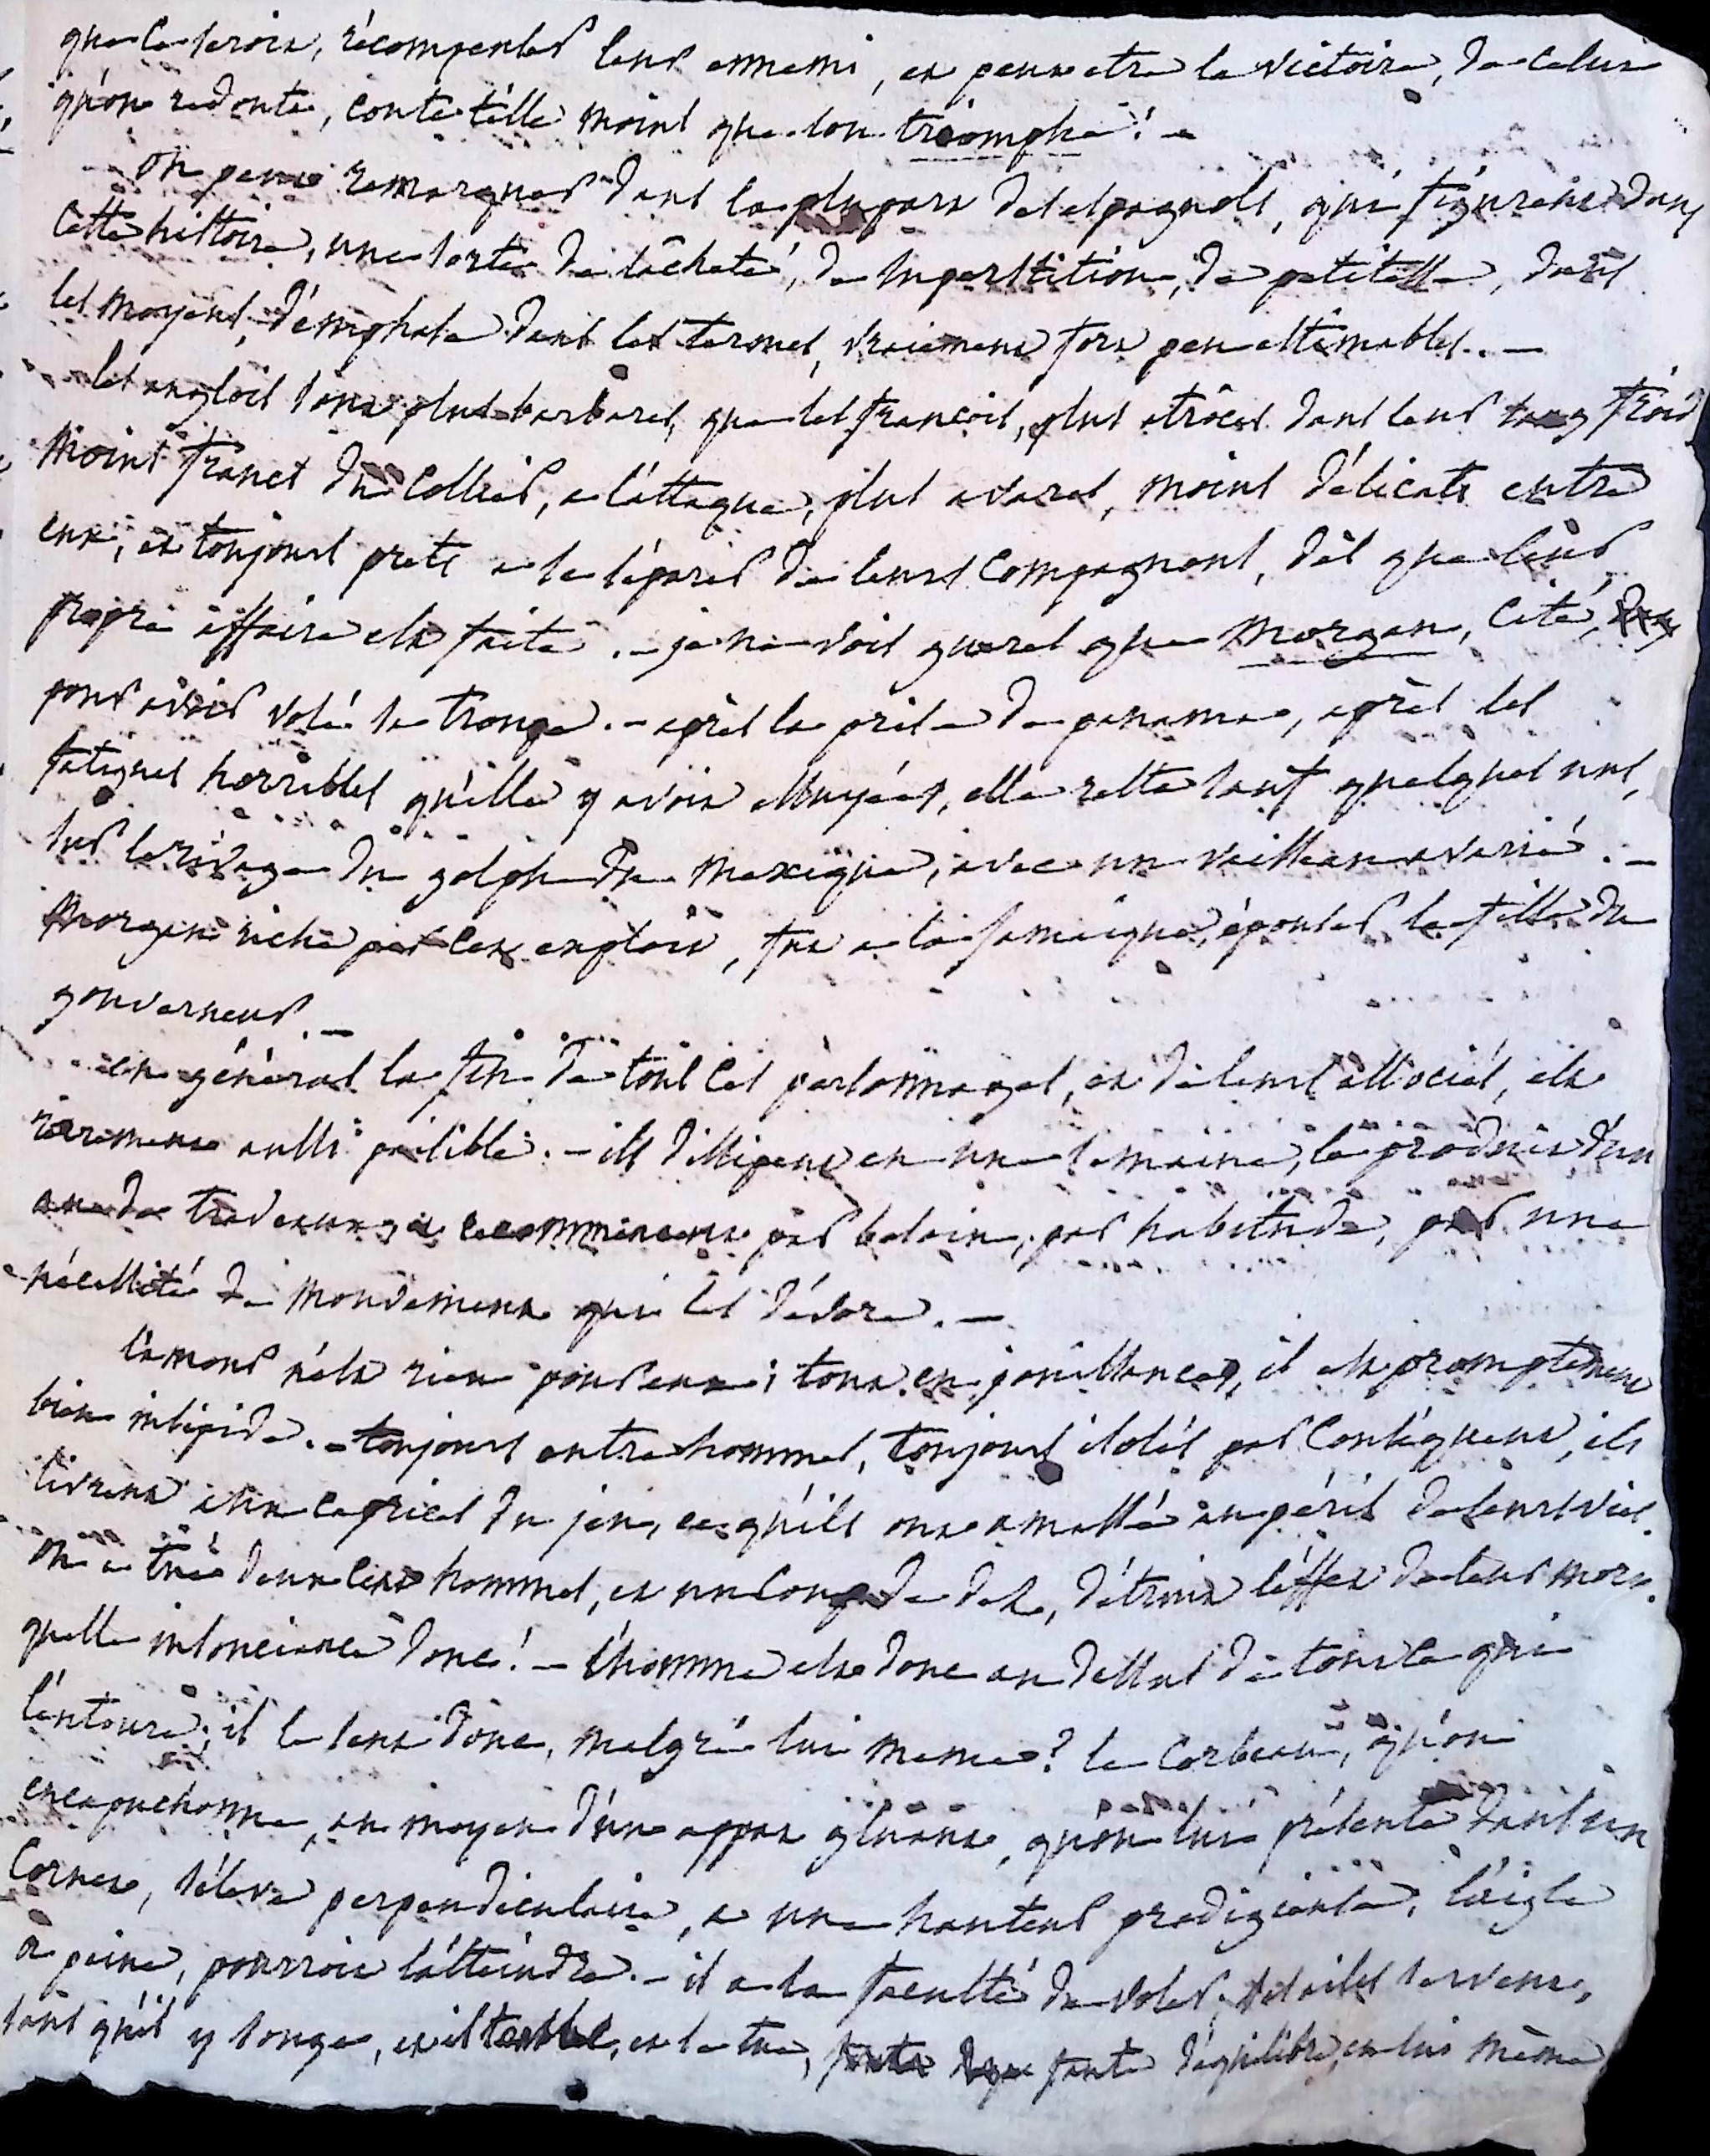 que ce seroit, récompenser leur ennemi, et peut etre la victoire, de celui
qu'on redoute, conte t'elle moins que son triomphe! -
on peut remarquer dans la plupart des espagnols, qui figurent dans
cette histoire, une sorte de lâcheté, de superstition, de petitesse, dans
les moyens, d'emphase dans les termes, vraiment fort peu estimables. -
les anglois sont plus barbares, que les françois, plus atrôces dans leur sang froid
moins francs du collier, a l'attaque, plus avares, moins délicats entre
eux, et toujours prets a se séparer de leurs compagnons, dès que leur
propre affaire est faite. - je ne vois gueres que Morgan, cité,
pour avoir volé sa troupe. - après la prise de panama, après les
fatigues horribles qu'elle y avoit essuyées, elle resta sauf quelques uns,
sur le rivage du golphe du mexique, avec un vaisseau avarié. -
Morgan riche par cet exploit, fut a la jamaïque, épouser la fille du
gouverneur. -
en général la fin de tous ces personnages, et de leurs associés, est
rarement aussi paisible. - ils dissipent en une semaine, le produit d'un
an de travaux, et recommencent par besoin, par habitude, par une
nécessité de mouvement qui les dévore. -
l'amour n'est rien pour eux; tout en jouissances, il est promptement
bien insipide. - toujours entre hommes, toujours isolés par conséquent, ils
livrent aux caprices du jeu, ce qu'ils ont amassé au péril de leurs vies.
on a tué deux cent hommes, et un coup de dez, détruit l'effet de leur mort.
quelle insouciance donc! - l'homme est donc au dessus de tout ce qui
l'entoure, il le sent donc, malgré lui meme? le corbeau, qu'on
encapuchonne, au moyen d'un appat gluant, qu'on lui présente dans un
cornet, s'éleve perpendiculaire, a une hauteur prodigieuse, l'aigle
a peine, pourroit l'atteindre. - il a la faculté de voler, ses ailes servent,
sans qu'il y songe, et il tombe, et se tue, faute d'équilibre, en lui même